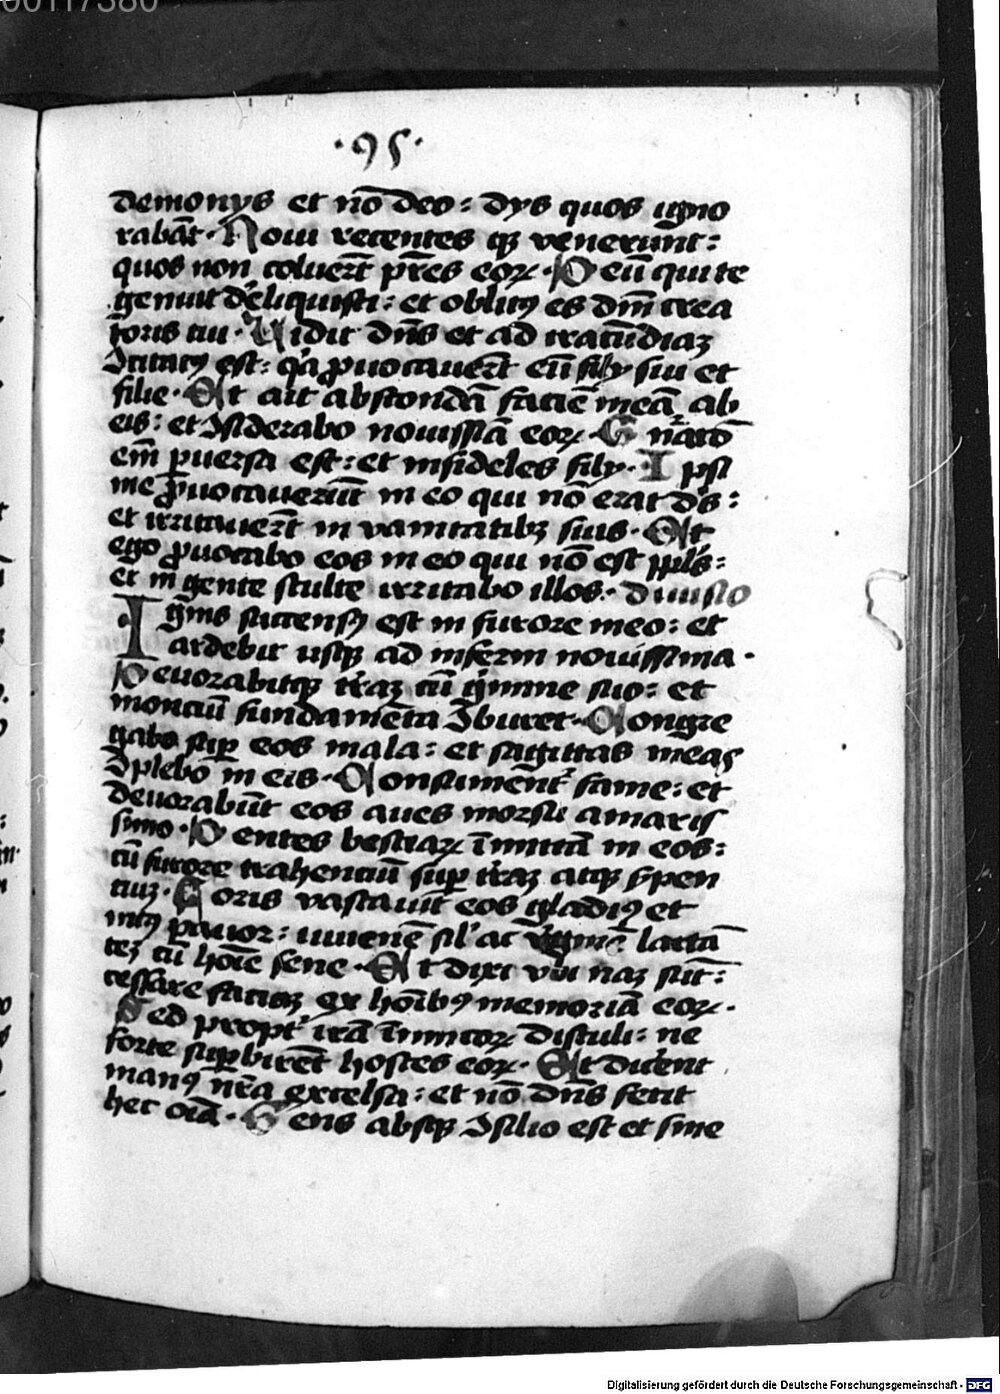 00117380
·95·
demonys et nō deo: dys quos igno
rabāt· Noui recentes qꝫ venerunt:
quos non coluerūt pr̄es eoꝝ· Deū qui te
genuit d'eliquisti: et oblitꝰ es dn̄i crea
toris tui· Uidit dn̄s et ad iracūdiaꝫ
ↄcitatꝰ est: qꝛ ꝓuocauerūt eū filij sui et
filie· Et ait abscondā faciē meā ab
eis: et ↄsiderabo nouissīa eoꝝ· G n̄acō
em̄ ꝑuersa est: et infideles filij· I psi
me ꝓuocauerūt in eo qui nō erat d's:
et irritauerūt in vanitatibꝫ suis· Et
ego ꝓuocabo eos in eo qui nō est pp̄ls:
et in gente stulta irritabo illos· diuisio
Ignis succensꝰ est in furore meo: et
ardebit usqꝫ ad inferni nouissima·
Deuorabitqꝫ t'raꝫ cū g'mine suo: et
montiū fundamēta ↄburet· Congre
gabo suꝑ eos mala: et sagittas meas
ↄplebo in eis· Consumēnt' fame: et
deuorabūt eos aues morsu amaris
simo· Dentes bestiaꝝ īmittā in eos:
cū furore trahentiū suꝑ t'raꝫ atqꝫ s'pen
tiuꝫ· Foris vastauit eos gladiꝰ et
intꝰ pauor: iuuenē sil' ac v'ginē lactā
teꝫ cū hoīe sene· Et dixi vbi naꝫ sūt:
cessare faciaꝫ ex hoībꝰ memoriā eoꝝ·
Sed propt' irā inimicoꝝ distuli: ne
forte suꝑbirēt hostes eoꝝ· Et dicent
manꝰ nr̄a excelsa: et nō dn̄s fecit
hec oīa· Gens absqꝫ ↄsilio est et sine
Digitalisierung gefördert durch die Deutsche Forschungsgemeinschaft - DFG